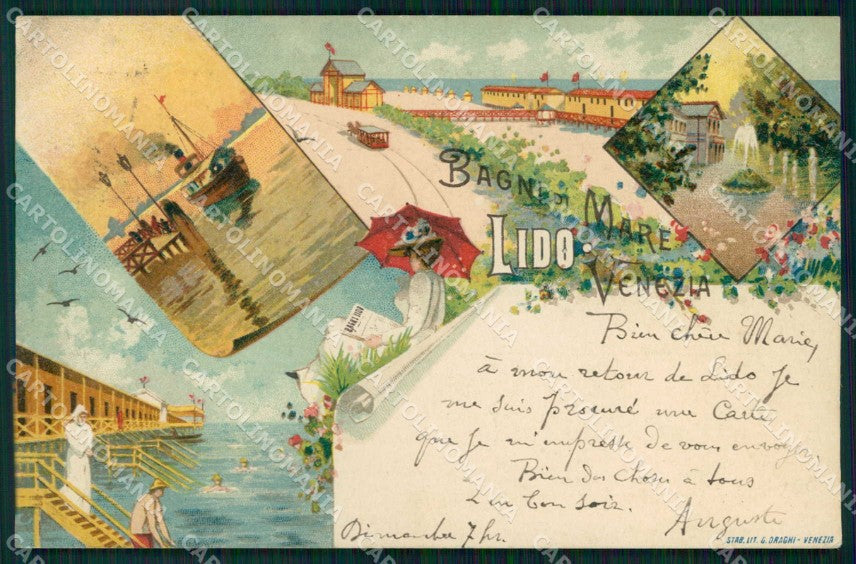 BAGNI DI MARE
LIDO
VENEZIA
Bien chère Marie,
à mon retour de Lido je
me suis procuré une Carte
que je m'empresse de vous envoyer
Bien des choses à tous
Un bon soir.
Dimanche 7 hr.
Auguste
STAB. LIT. G. DRAGHI - VENEZIA
CARTOLINOMANIA